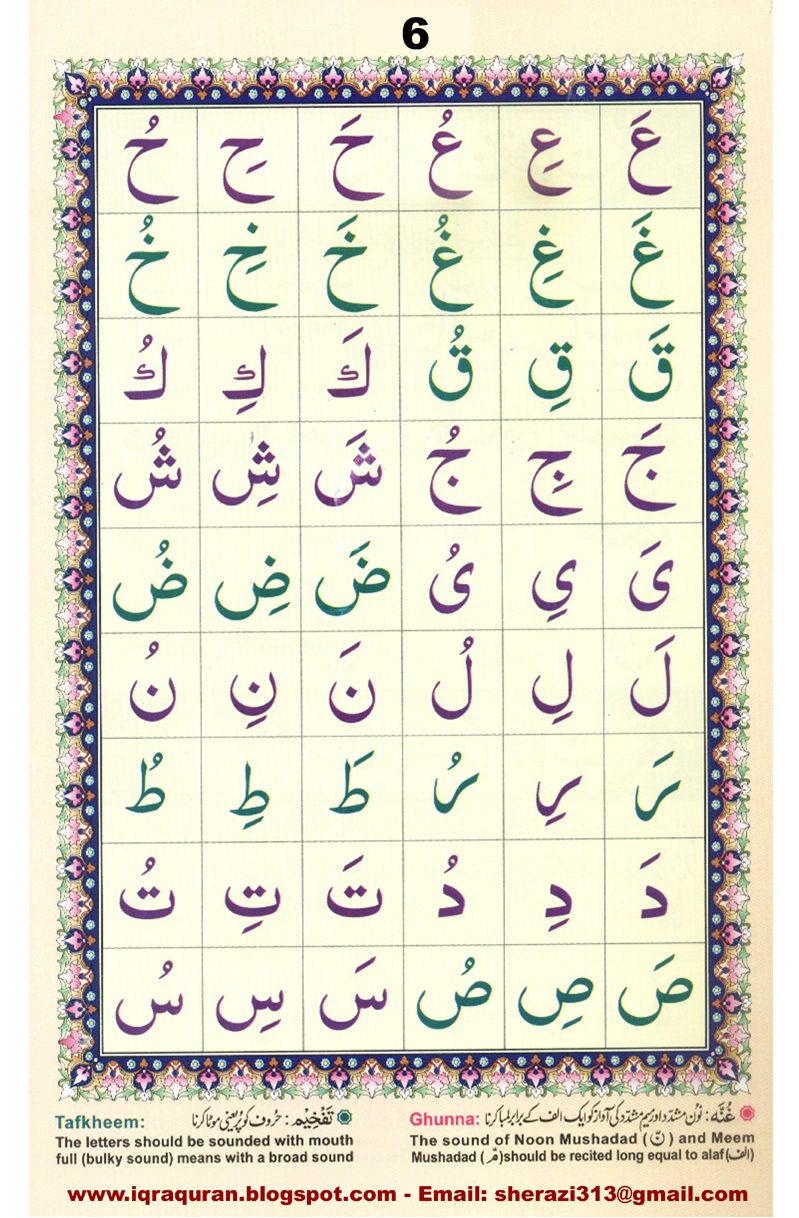 6
عَ عِ عُ حَ حِ حُ
غَ غِ غُ خَ خِ خُ
قَ قِ قُ كَ كِ كُ
جَ جِ جُ شَ شِ شُ
یَ یِ یُ ضَ ضِ ضُ
لَ لِ لُ نَ نِ نُ
رَ رِ رُ طَ طِ طُ
دَ دِ دُ تَ تِ تُ
صَ صِ صُ سَ سِ سُ
غُنَّه: نُوْن مشدّد اور میم مشدّد کی آواز کو ایک الف کے برابر لمبا کرنا
Ghunna:
The sound of Noon Mushadad (نّ) and Meem
Mushadad (مّ)should be recited long equal to alaf(الف)
تَفْخِیْم: حُروف کو پُر یعنی موٹا کرنا
Tafkheem:
The letters should be sounded with mouth
full (bulky sound) means with a broad sound
www.iqraquran.blogspot.com - Email: sherazi313@gmail.com